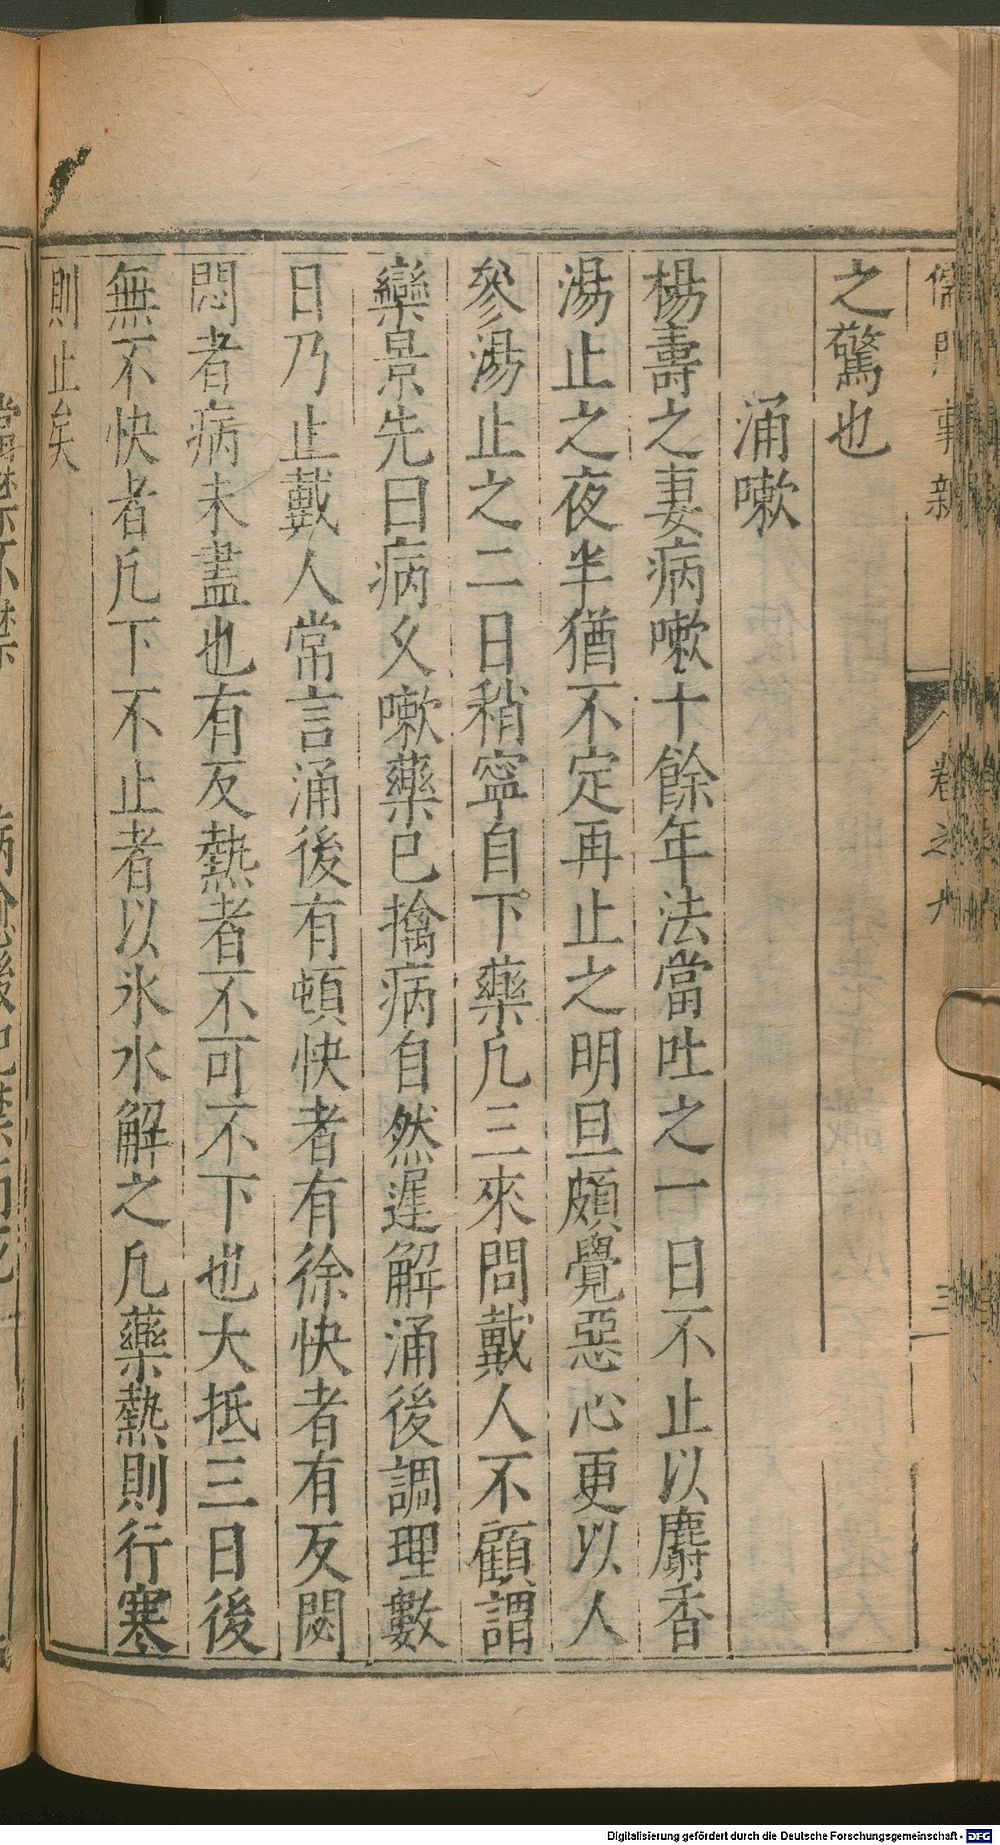 儒門事親
卷之九
三
之驚也
涌嗽
楊壽之妻病嗽十餘年法當吐之一日不止以麝香
湯止之夜半猶不定再止之明旦頗覺惡心更以人
參湯止之二日稍寧自下藥凢三來問戴人不顧謂
欒景先曰病久嗽藥已擒病自然遲解涌後調理數
日乃止戴人常言涌後有頓快者有徐快者有反閟
悶者病未盡也有反熱者不可不下也大抵三日後
無不快者凢下不止者以氷水解之凢藥熱則行寒
則止矣
Digitalisierung gefördert durch die Deutsche Forschungsgemeinschaft - DFG